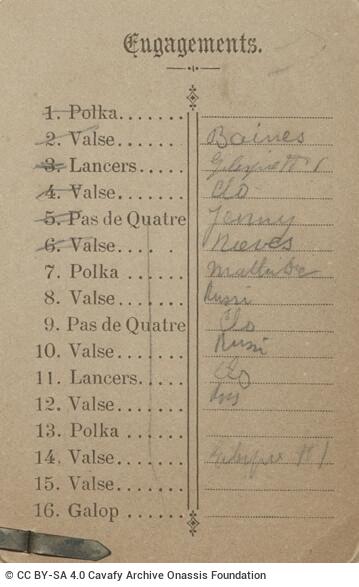 Engagements.
1. Polka.......
2. Valse....... Baines
3. Lancers.....
4. Valse....... Clo
5. Pas de Quatre Jenny
6. Valse.... . Nieves
7. Polka ......
8. Valse....... Russi
9. Pas de Quatre Clo
10. Valse....... Russi
11. Lancers..... Clo
12. Valse....... Rus
13. Polka ......
14. Valse.......
15. Valse.......
16. Galop .......
© CC BY-SA 4.0 Cavafy Archive Onassis Foundation